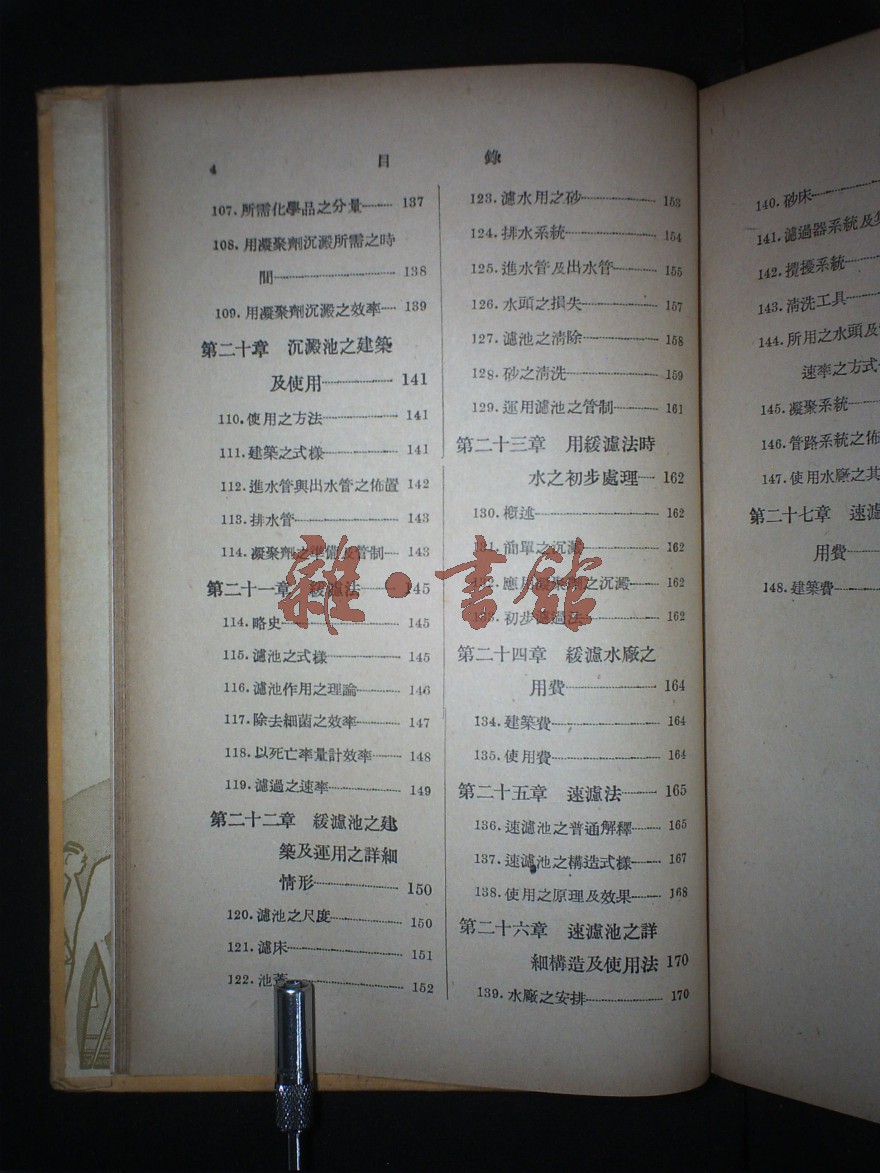 4 目 錄
107. 所需化學品之分量 137
108. 用凝聚劑沉澱所需之時
間 138
109. 用凝聚劑沉澱之效率 139
第二十章 沉澱池之建築
及使用 141
110. 使用之方法 141
111. 建築之式樣 141
112. 進水管與出水管之佈置 142
113. 排水管 143
114. 凝聚劑之準備及管制 143
第二十一章 緩濾法 145
114. 略史 145
115. 濾池之式樣 145
116. 濾池作用之理論 146
117. 除去細菌之效率 147
118. 以死亡率量計效率 148
119. 濾過之速率 149
第二十二章 緩濾池之建
築及運用之詳細
情形 150
120. 濾池之尺度 150
121. 濾床 151
122. 池蓋 152
123. 濾水用之砂 153
124. 排水系統 154
125. 進水管及出水管 155
126. 水頭之損失 157
127. 濾池之清除 158
128. 砂之清洗 159
129. 運用濾池之管制 161
第二十三章 用緩濾法時
水之初步處理 162
130. 概述 162
131. 簡單之沉澱 162
132. 應用凝聚劑之沉澱 162
133. 初步濾過法 162
第二十四章 緩濾水廠之
用費 164
134. 建築費 164
135. 使用費 164
第二十五章 速濾法 165
136. 速濾池之普通解釋 165
137. 速濾池之構造式樣 167
138. 使用之原理及效果 168
第二十六章 速濾池之詳
細構造及使用法 170
139. 水廠之安排 170
140. 砂床
141. 濾過器系統及
142. 攪擾系統
143. 清洗工具
144. 所用之水頭及
速率之方式
145. 凝聚系統
146. 管路系統之佈
147. 使用水廠之其
第二十七章 速濾
用費
148. 建築費
雜·書館